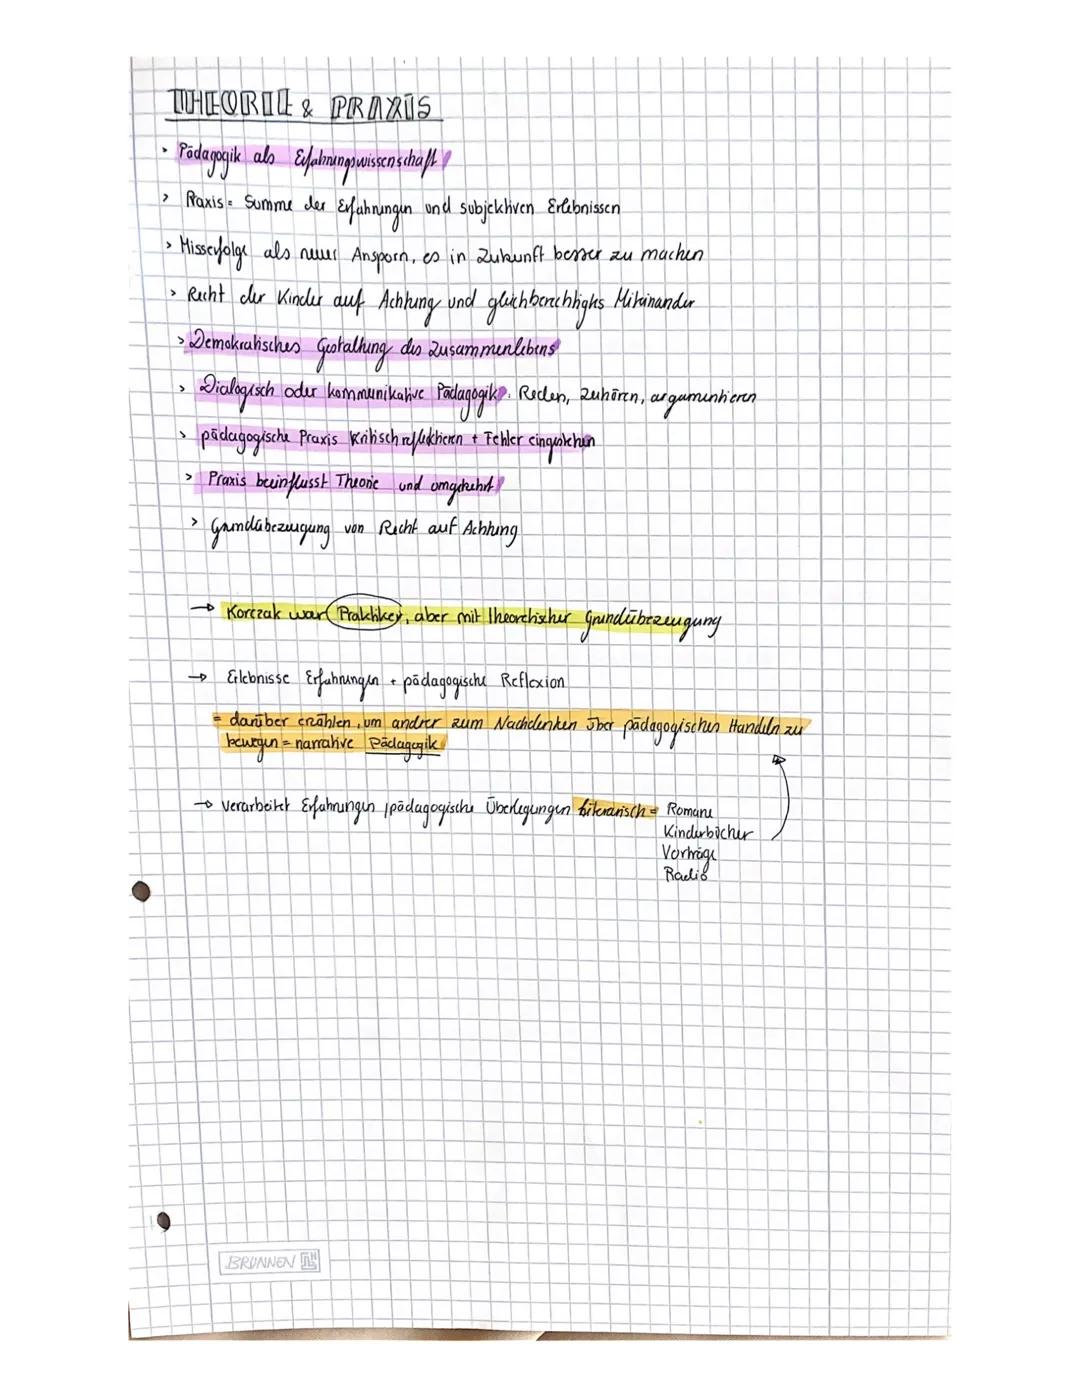 THEORIE & PRAXIS
› Pädagogik als Erfahrungswissenschaft
› Praxis = Summe der Erfahrungen und subjektiven Erlebnissen
› Misserfolge als neuer Ansporn, es in Zukunft besser zu machen
› Recht der Kinder auf Achtung und gleichberechtigtes Miteinander
› Demokratisches Gestaltung des Zusammenlebens
› Dialogisch oder kommunikative Pädagogik: Reden, zuhören, argumentieren
› pädagogische Praxis kritisch reflektieren + Fehler eingestehen
› Praxis beeinflusst Theorie und umgekehrt
› Grundübezeugung von Recht auf Achtung
→ Korczak war Praktiker, aber mit theoretischer Grundübezeugung
→ Erlebnisse Erfahrungen + pädagogische Reflexion
= darüber erzählen, um andrer zum Nachdenken über pädagogisches Handeln zu
bewegen = narrative Pädagogik
→ verarbeitet Erfahrungen, pädagogische Überlegungen literarisch = Romane
Kinderbücher
Vorträge
Radio
BRUNNEN